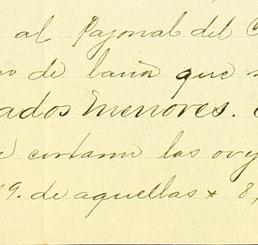 al Pajonal del C
o de lana que
ados menores.
e cortaron las ovej
9. de aquellas * 8,